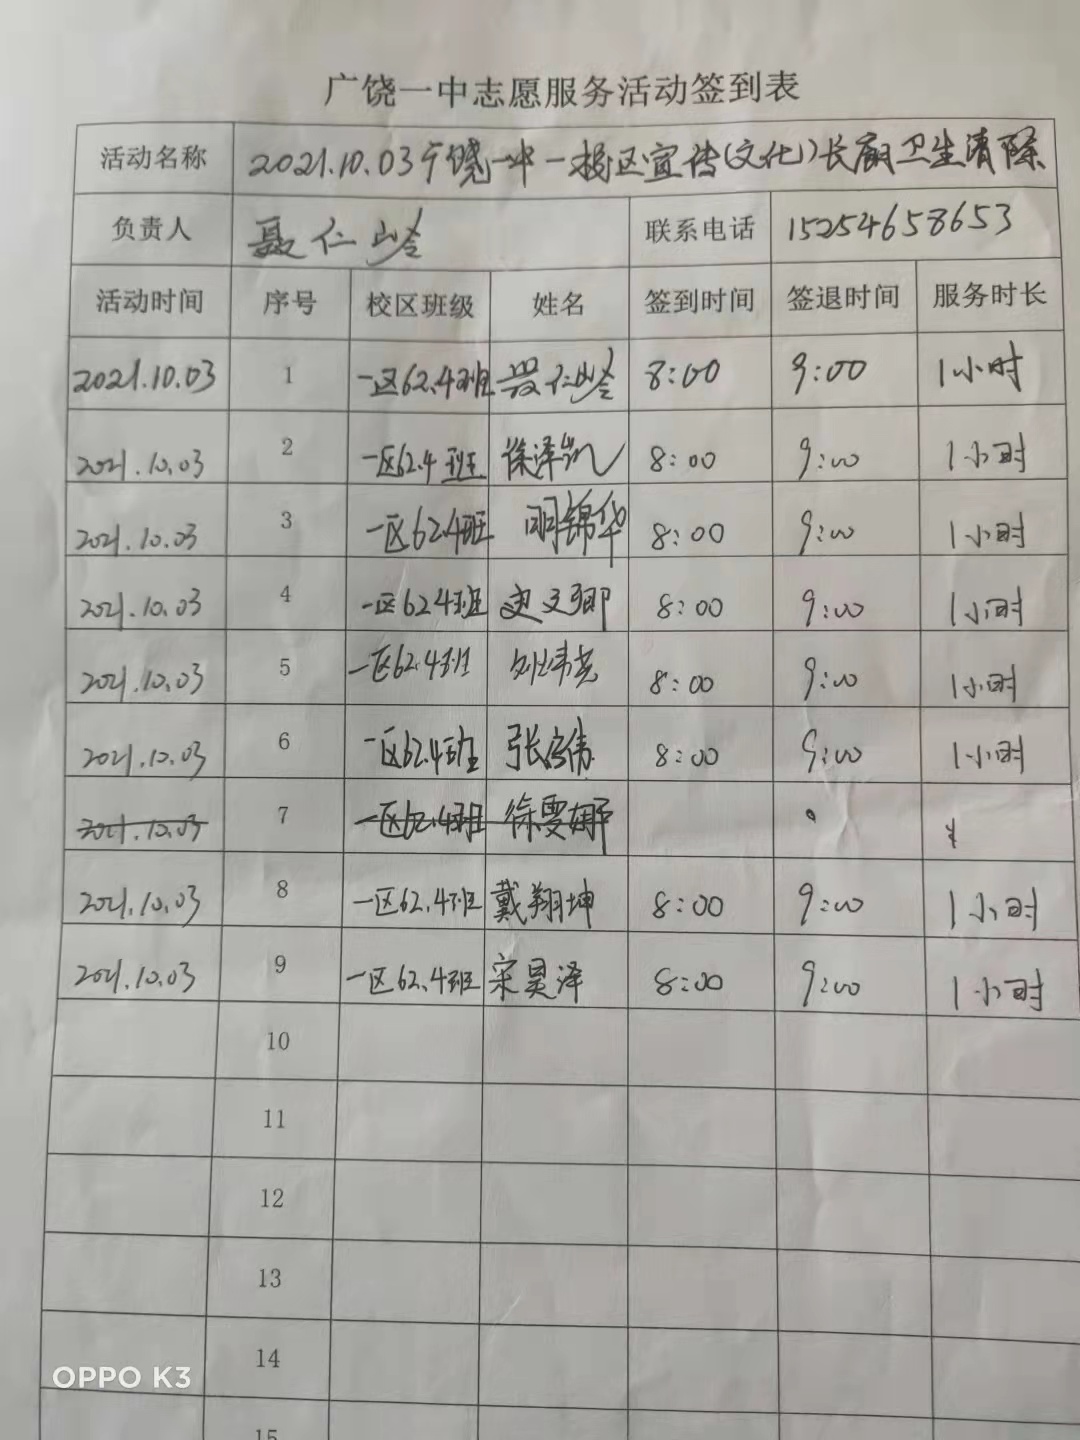 广饶一中志愿服务活动签到表
活动名称 2021.10.03广饶一中一校区宣传(文化)长廊卫生清除
负责人 聂仁峰 联系电话 15254658653
活动时间 序号 校区班级 姓名 签到时间 签退时间 服务时长
2021.10.03 1 一区62.4班 8:00 9:00 1小时
2021.10.03 2 一区62.4班 徐泽凯 8:00 9:00 1小时
2021.10.03 3 一区62.4班 明锦华 8:00 9:00 1小时
2021.10.03 4 一区62.4班 8:00 9:00 1小时
2021.10.03 5 一区62.4班 8:00 9:00 1小时
2021.10.03 6 一区62.4班 8:00 9:00 1小时
2021.10.03 7 一区62.4班 徐雯娜
2021.10.03 8 一区62.4班 戴翔坤 8:00 9:00 1小时
2021.10.03 9 一区62.4班 宋昊泽 8:00 9:00 1小时
10
11
12
13
14
15
OPPO K3